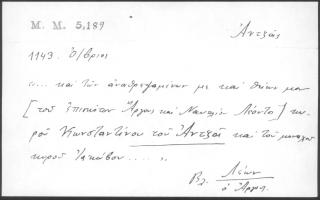 Μ. Μ. 5,189
Ἀντζᾶς
1143. Ὀ/βριος
«... καὶ τῶν ἀναθρεψαμένων με καὶ θείων μου
[τοῦ ἐπισκόπου Ἄργους καὶ Ναυπλίου Λέοντος] κυ-
ροῦ Κωνσταντίνου τοῦ Ἀντζᾶ καὶ τοῦ μοναχοῦ
κυροῦ Ἰακώβου.....»
Βλ. Λέων
ὁ Ἄργους